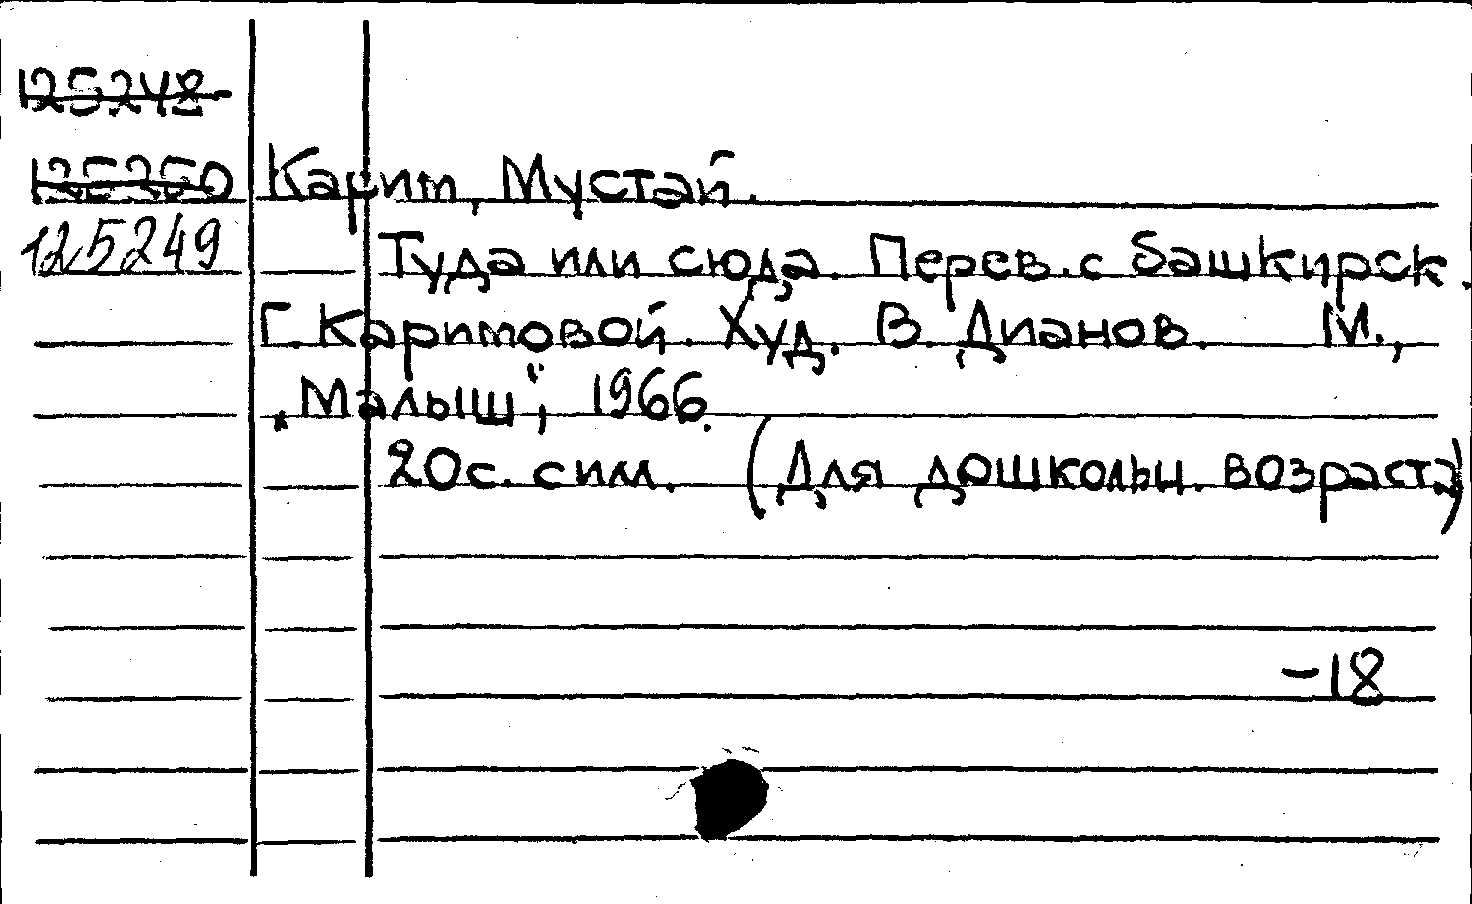 125248
125250 Карит, Мустай.
125249 Туда или сюда. Перев. с башкирск.
Г. Каримовой. Худ. В. Дианов. М.,
„Малыш", 1966.
20с. с илл. (Для дошкольн. возраста)
-18